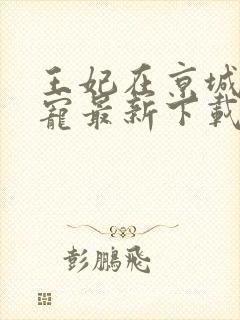 王妃在京城
寵最新下載
彭鵬飛